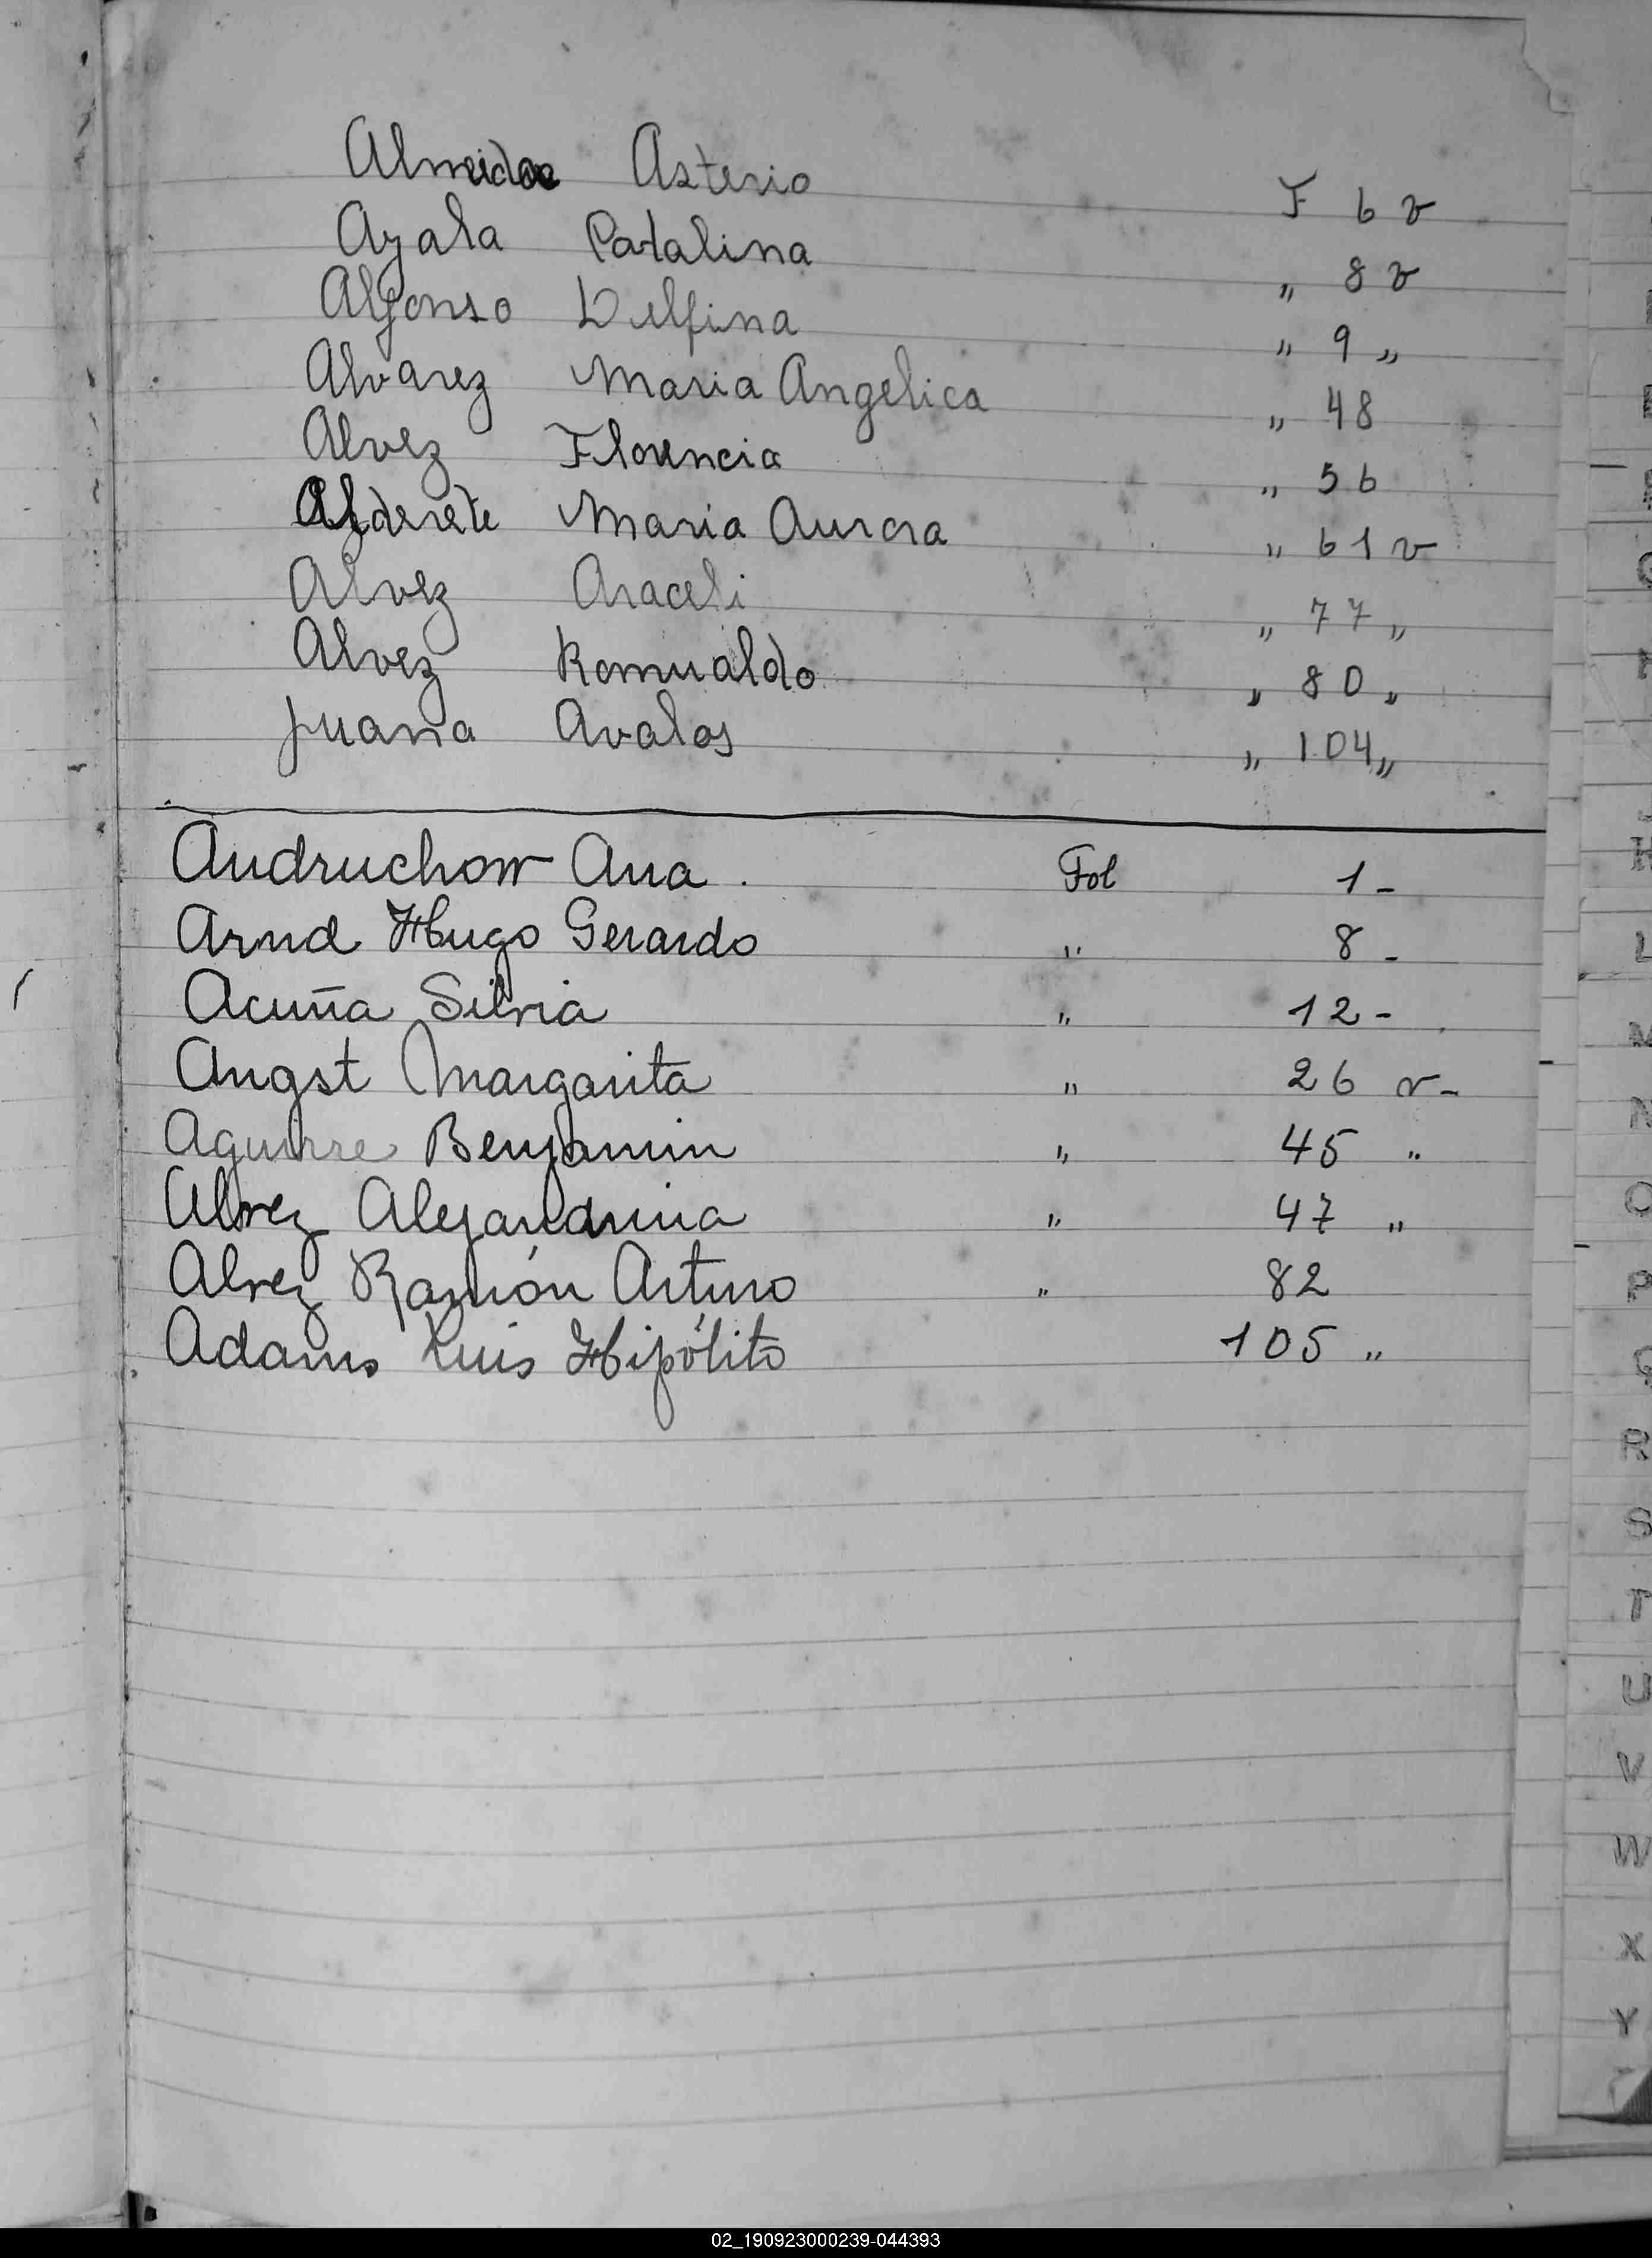 Almeida Asterio F 6 v
Ayala Catalina „ 8 v
Alfonso Delfina „ 9 „
Alvarez Maria Angelica „ 48
Alvez Florencia „ 56
Alderete Maria Aurora „ 61 v
Alvez Araceli „ 77 „
Alvez Romualdo „ 80 „
Juana Avalos „ 104 „
Andruchow Ana . Fol 1 -
Arnd Hugo Gerardo „ 8 -
Acuña Silvia „ 12 -
Angst Margarita „ 26 v -
Aguirre Benjamin „ 45 „
Alvez Alejandrina „ 47 „
Alvez Ramón Arturo „ 82
Adams Luis Hipólito 105 „
L
M
N
O
P
Q
R
S
T
U
V
W
X
Y
02_190923000239-044393